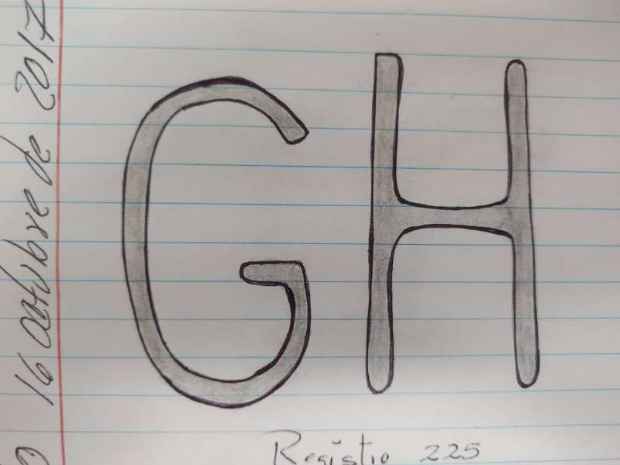 16 octubre de 2017
GH
Registro 225